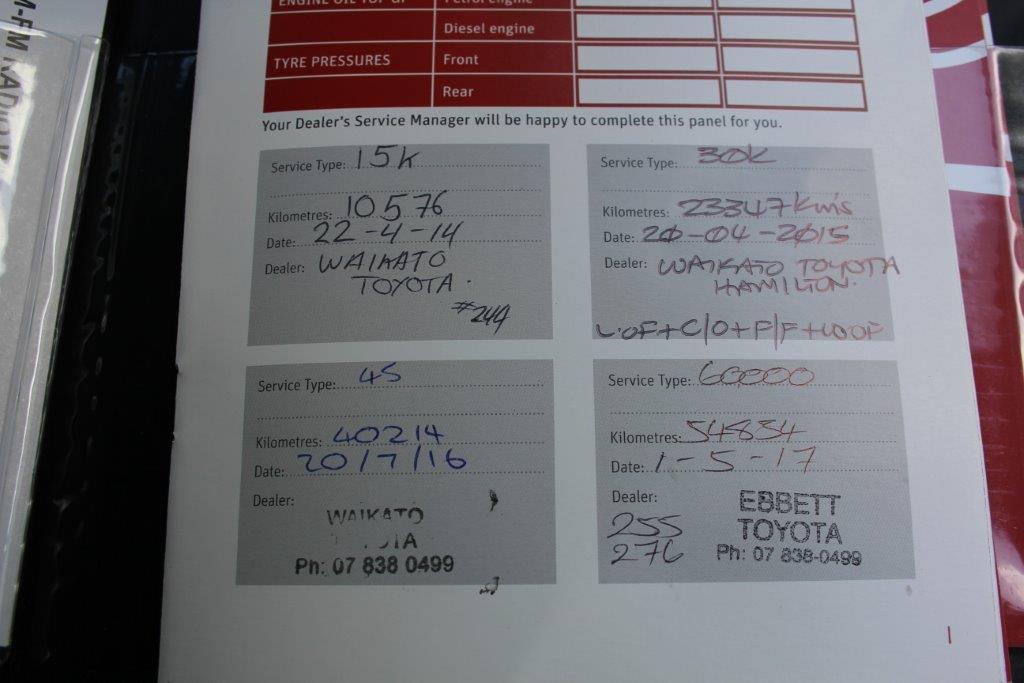 M-FM RADIO
ENGINE OIL TOP UP Petrol engine
Diesel engine
TYRE PRESSURES Front
Rear
Your Dealer's Service Manager will be happy to complete this panel for you.
Service Type: 15k
Kilometres: 10576
Date: 22-4-14
Dealer: WAIKATO
TOYOTA.
#244
Service Type: 30k
Kilometres: 23347 Km's
Date: 20-04-2015
Dealer: WAIKATO TOYOTA
HAMILTON.
L.OF+C/O+P/F+WOOF
Service Type: 45
Kilometres: 40214
Date: 20/7/16
Dealer:
WAIKATO
Ph: 07 838 0499
Service Type: 60000
Kilometres: 54834
Date: 1-5-17
Dealer: EBBETT
255 TOYOTA
276 Ph: 07 838-0499
1